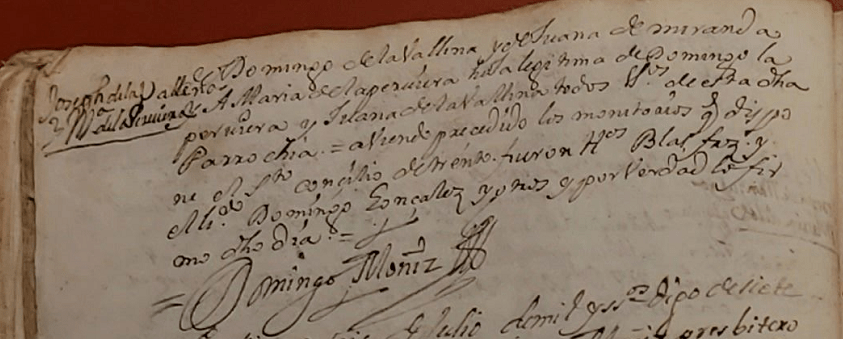 Joseph de la Valleno
y Mª de la Peruiera
de Domingo de la Vallina y de Juana de miranda
A Maria de la peruiera hija legitima de Domingo la
peruiera y Juana de la Vallina todos Vºs de esta dha
Parrochia = aviendo precedido los monitorios q dispo
ne el Sto concilio de trento fueron tºs Blas frz y
el liᵈº Domingo Gonçalez y otros y por Verdad lo fir
mo dho dia =
= Domingo Moniz
de Julio de mil y ssºs diço de siete
presbitero